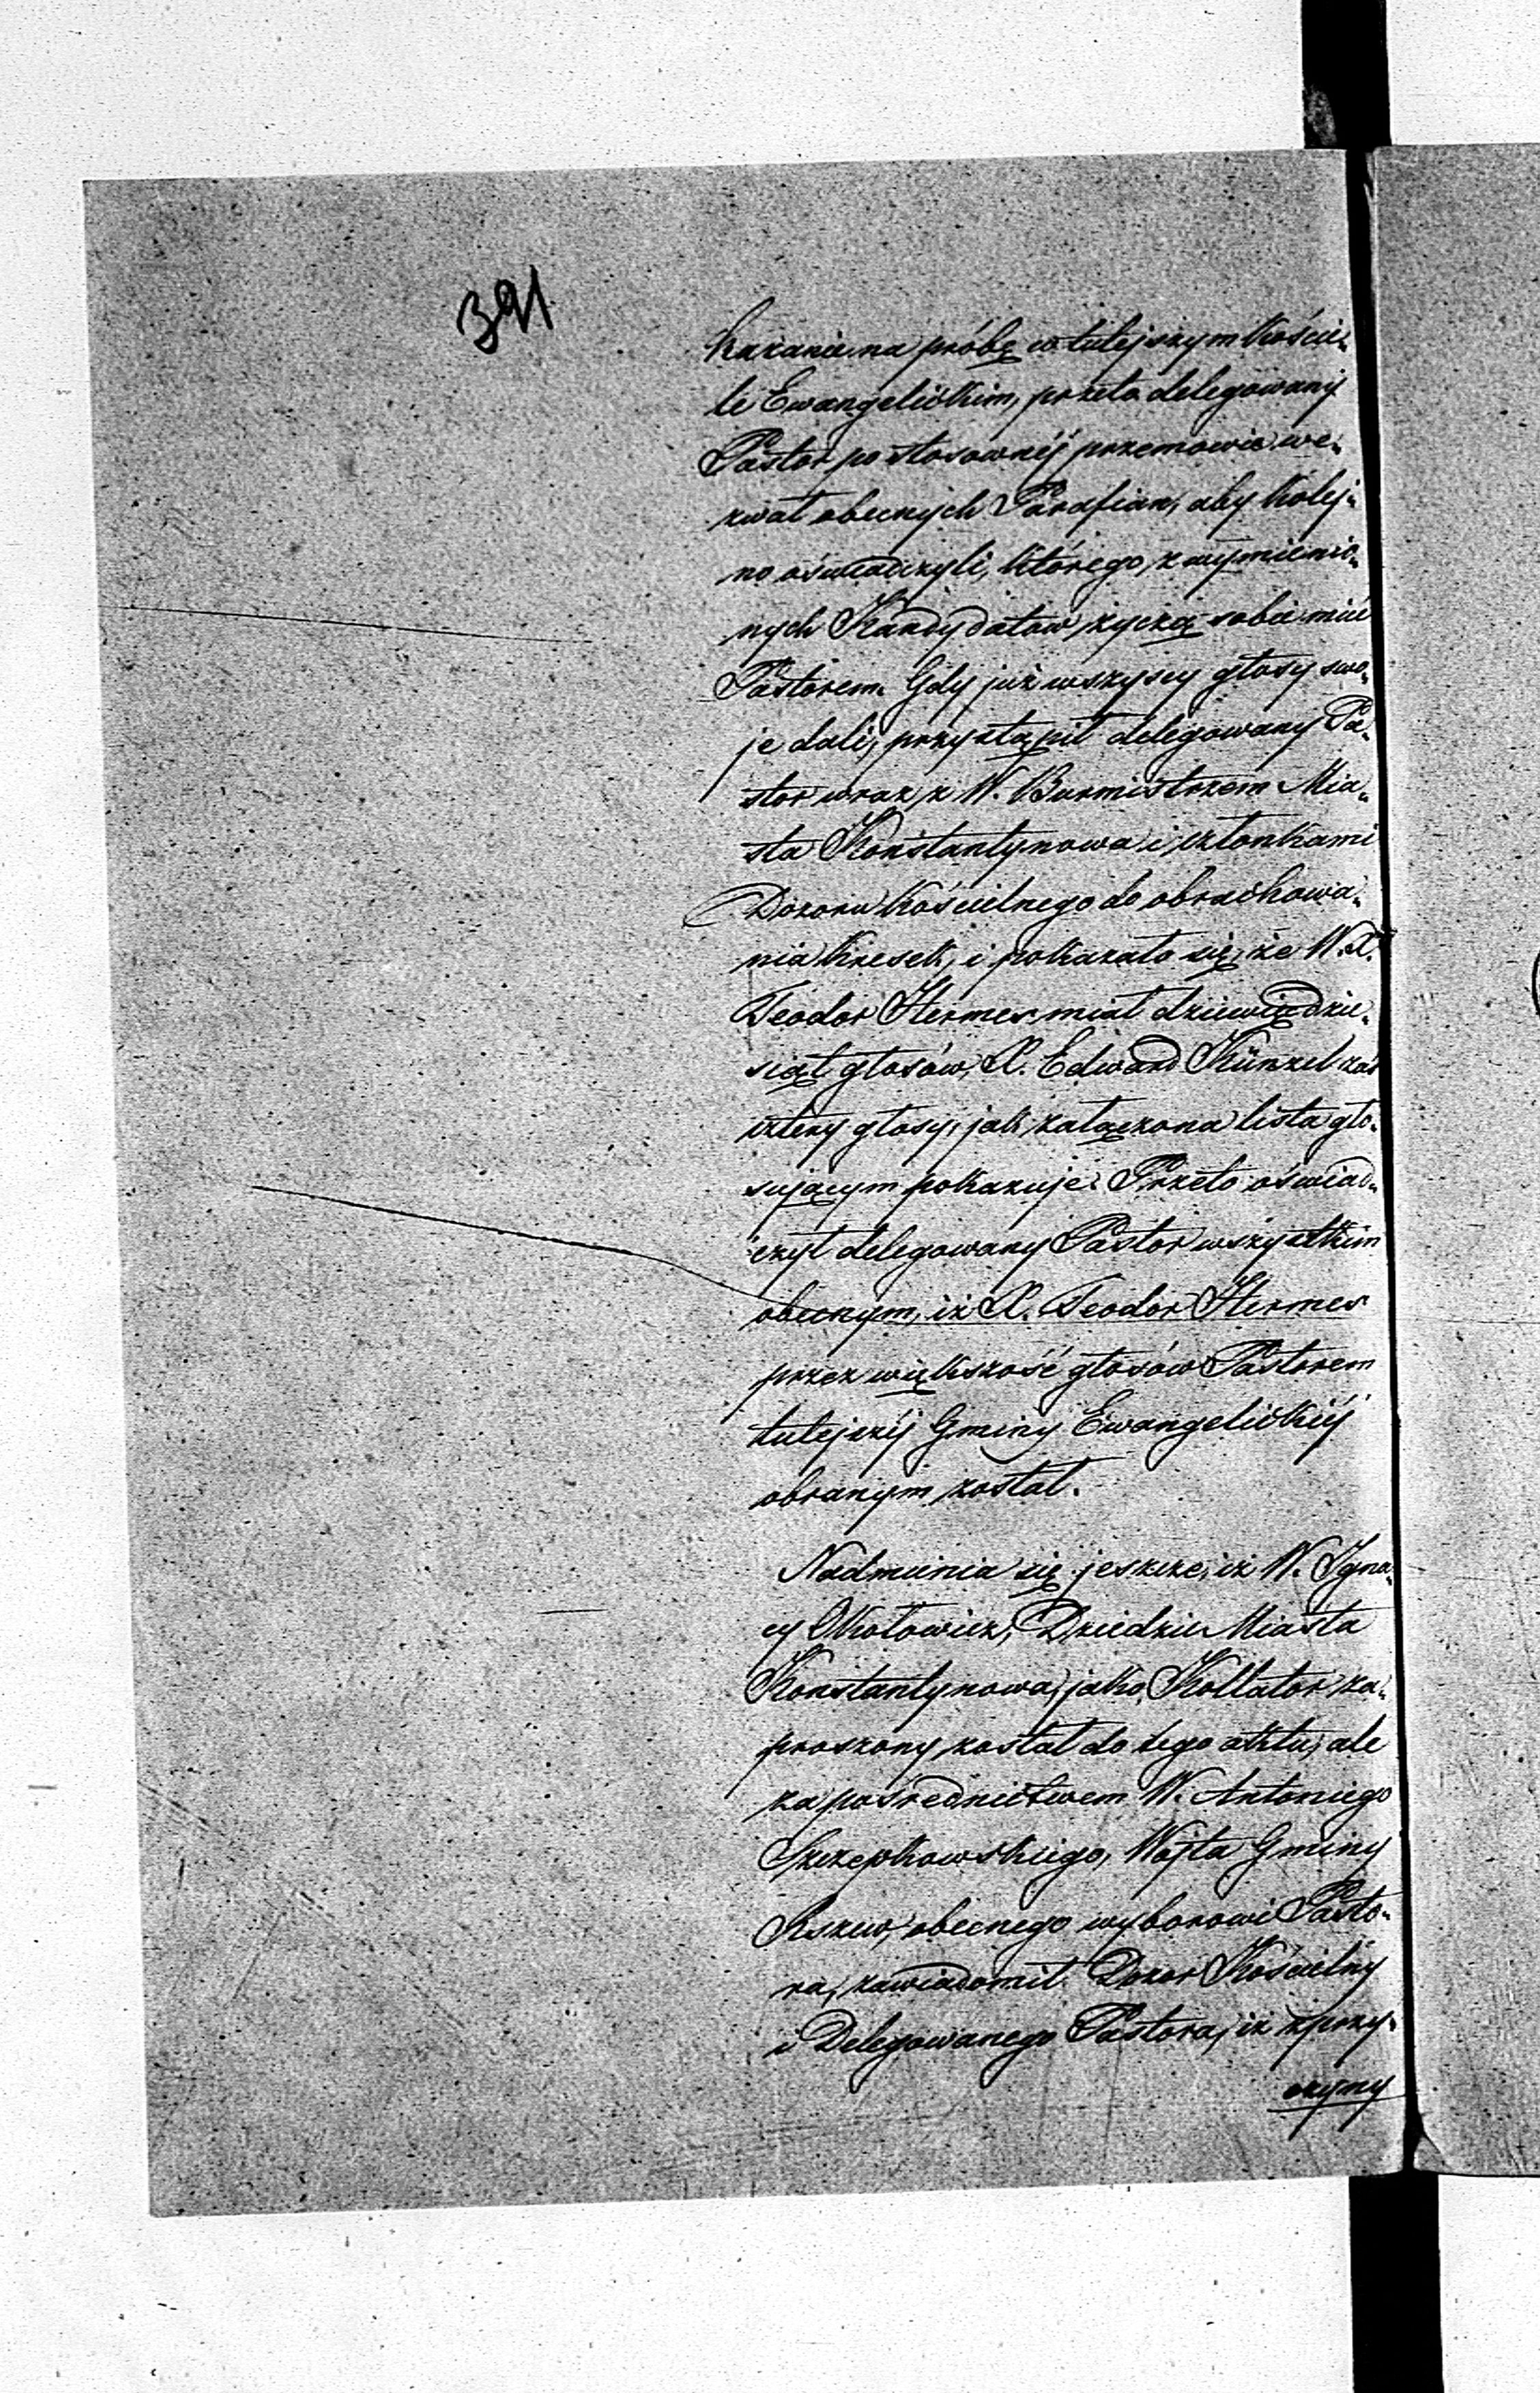 391
kazanie na próbę w tutejszym Kościé-
le Ewangelickim, przeto delegowany
Pastor po stosownéj przemowie we-
zwał obecnych Parafian, aby kolej-
no oświadczyli, którego z wymienio-
nych Kandydatow życzą sobie mieć
Pastorem. Gdy już wszyscy głosy swo-
je dali, przystąpił delegowany Pa-
stor wraz z W. Burmistrzem Mia-
sta Konstantynowa i członkami
Dozoru Kościelnego do obrachowa-
nia kresek, i pokazało się, że W. X.
Teodor Hermes miał dziewiędzie-
siąt głosów, X. Edward Künzel zaś
cztery głosy, jak załączona lista gło-
sującym pokazuje. Przeto oświad-
czył delegowany Pastor wszystkim
obecnym, iż X. Teodor Hermes
przez większość głosów Pastorem
tutejszéj Gminy Ewangelickiéj
obranym został.
Nadmienia się jeszcze, iż W. Igna-
cy Okołowicz, Dziedzic Miasta
Konstantynowa, jako Kollator za-
proszony został do tego aktu, ale
za pośrednictwem W. Antoniego
Szczepkowskiego, Wójta Gminy
Rszew, obecnego wyborowi Pasto-
ra, zawiadomił Dozor Kościelny
i Delegowanego Pastora, iż z przy-
czyny